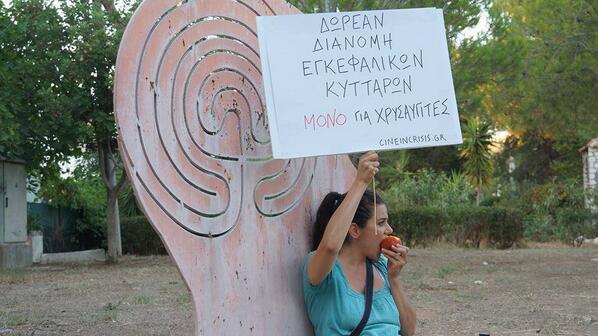 ΔΩΡΕΑΝ
ΔΙΑΝΟΜΗ
ΕΓΚΕΦΑΛΙΚΩΝ
ΚΥΤΤΑΡΩΝ
ΜΟΝΟ ΓΙΑ ΧΡΥΣΑΥΓΙΤΕΣ
CINEINCRISIS.GR